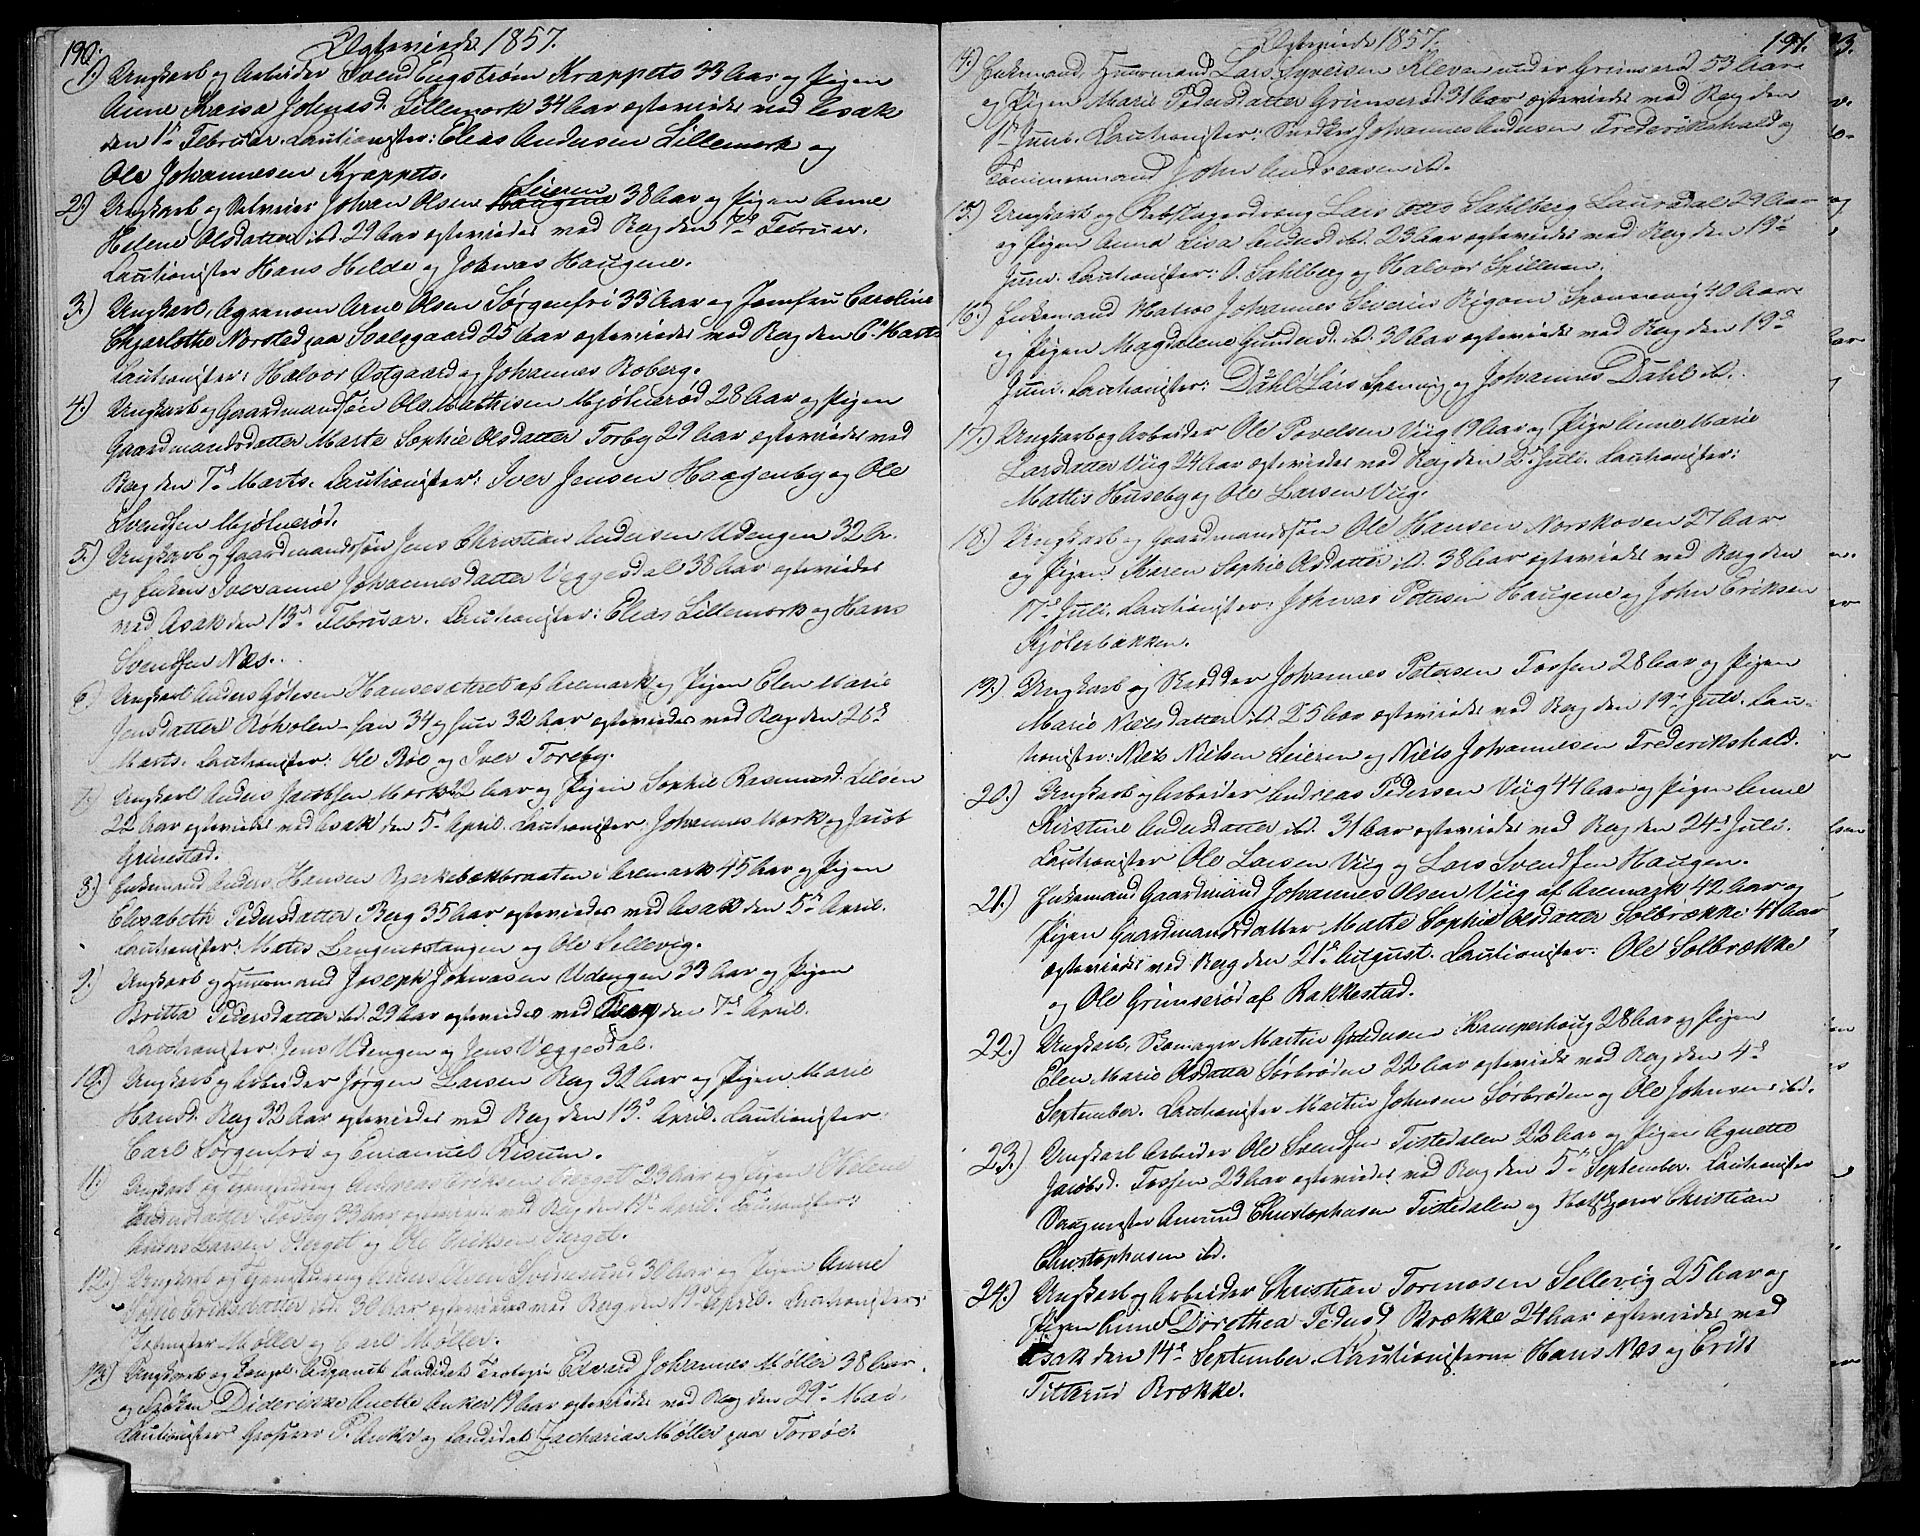 190.
Egteviede 1857.
1.) Ungkarl og Arbeider Svend Engstrøm Krappets 33 Aar og Pigen
Anne Kaisa Johnasd. Lillemork 34 Aar egteviede ved Asak
den 1ste Februar. Cautionister: Elias Andersen Lillemork og
Ole Johannesen Krappets.
2.) Ungkarl og Selveier Johan Olsen Haugene Leieren 38 Aar og Pigen Anne
Helene Olsdatter ibd. 29 Aar egteviede ved Berg den Februar.
Cautionister Hans Hilde og Johnas Haugene.
3.) Ungkarl, Agronom Arne Olsen Sørgenfri 33 Aar og Jomfru Caroline
Charlothe Norsted paa Svalsgaard 25 Aar egteviede ved Berg den 6te Marts
Cautionister: Halvor Østgaard og Johannes Roberg.
4.) Ungkarl og Gaardmandssøn Ole Mathisen Mjølnerød 28 Aar og Pigen
Gaardmandsdatter Marte Sophie Olsdatter Torby 29 Aar egteviede ved
Berg den 7de Marts. Cautionister: Iver Jensen Haagenby og Ole
Svendsen Mjølnerød.
5.) Ungkarl og Gaardmandssøn Jens Christian Andersen Udengen 32 A.
og Enken Iveranne Johannesdatter Veggesdal 38 Aar egteviede
ved Asak den 13de Februar. Cautionister: Elias Lillemork og Hans
Svendsen Næs.
6.) Ungkarl Anders Hansesæteret af Aremark og Pigen Elen Marie
Jensdatter Roholen han 34 og hun 32 Aar egteviede ved Berg den 26de
Marts. Cautionister: Ole Røe og Iver Toreby.
7.) Ungkarl Anders Jacobsen Mork 22 Aar og Pigen Sophie Rasmusd. Liløen
22 Aar egteviede ved Asak den 5te April. Cautionister: Johannes Mork og Jacob
Grimstad.
8.) Enkemand Anders Hansen Bjerkebækbraaten i Aremark 45 Aar og Pigen
Elisabeth Pedersdatter Berg 35 Aar egteviede ved Asak den 5te April.
Cautionister: Matis Langemostangen og Ole Sellevig.
9.) Ungkarl og Huusmand Joseph Johnasen Udengen 33 Aar og Pigen
Britta Pedersdatter ibd. 29 Aar egteviede ved Berg den 7de April.
Cautionister: Jens Udengen og Jens Veggesdal.
10.) Ungkarl og Arbeider Jørgen Larsen Berg 30 Aar og Pigen Marie
Hansd. Berg 32 Aar egteviede ved Berg den 13de April. Cautionister:
Carl Sørgenfri og Emanuel Risum.
11.) Ungkarl og Andreas Eriksen Berget 23 Aar og Pigen Helene
Andersdatter Torby 33 Aar egteviede ved Berg den April. Cautionister:
Anders Larsen Berget og Ole Eriksen Berget.
12.) Ungkarl og Anders Olsen Svinesund 30 Aar og Pigen Anne
Sofie Eriksdatter ibd. 30 Aar egteviede ved Berg den 19de April. Cautionister:
Møller og Carl Møller.
13.) Ungkarl og Candidat Teologie Edvard Johannes Møller 38 Aar
og Frøken Diderikke Anette Anker 19 Aar egteviede ved Berg den 29de Mai.
Cautionister Grosserer P. Anker og Candidat Zacharias Møller paa Torsøe.
Egteviede 1857.
191.
4.) Enkemand, Huusmand Lars Syversen Kleven under Grimserød 53 Aar
og Pigen Marie Pedersdatter Grimserød 31 Aar egteviede ved Berg den
1ste Juni. Cautionister: Snedker Johannes Andersen Frederikshald og
Tømmermand John Andreasen ibd.
15.) Ungkarl og Rebslagerdreng Lars Otto Sahlberg Laursdal 29 Aar
og Pigen Anna Lisa Andersd ibd. 23 Aar egteviede ved Berg den 19de
Juni. Cautionister: O. Sahlberg og Halvor Spilleren.
16.) Enkemand Matros Johannes Sivertz Bigom Sponnevig 40 Aar
og Pigen Magdalene Gundersd. ibd. 30 Aar egteviede ved Berg den 19de
Juni. Cautionister: Dahl Lars Sponvig og Johannes Dahl ibd.
17.) Ungkarl og Arbeider Ole Povelsen Viig 19 Aar og Pige Anne Marie
Larsdatter Viig 24 Aar egteviede ved Berg den 2den Juli. Cautionister:
Mattis Huseby og Ole Larsen Viig.
18.) Ungkarl og Gaardmandssøn Ole Hansen Norskoven 27 Aar
og Pigen Karen Sophie Olsdatter ibd. 38 Aar egteviede ved Berg den
17de Juli. Cautionister: Johnas Petersen Haugene og John Eriksen
Kjølerbakken.
19.) Ungkarl og Skrædder Johannes Petersen Fossen 28 Aar og Pigen
Marie Nielsdatter ibd. 25 Aar egteviede ved Berg den 19de Juli. Cau-
tionister: Niels Nielsen Leieren og Niels Johannesen Frederikshald.
20.) Ungkarl og Arbeider Andreas Pedersen Viig 44 Aar og Pigen Anne
Kirstine Andersdatter ibd. 31 Aar egteviede ved Berg den 24de Juli.
Cautionister Ole Larsen Viig og Lars Svendsen Haugen.
21.) Enkemand Gaardmand Johannes Olsen Viig af Aremark 42 Aar og
Pigen Gaardmandsdatter Marte Sophie Olsdatter Solbrække 41 Aar
egteviede ved Berg den 21de August. Cautionister: Ole Solbrække
og Ole Grimserød af Rakkestad.
22.) Ungkarl, Skomager Martin Gudmusen Kamperhoug 28 Aar og Pigen
Elen Marie Olsdatter Sørbrøden 22 Aar egteviede ved Berg den 4de
September. Cautionister Martin Johnsen Sørbrøden og Ole Johnsen ibd.
23.) Ungkarl Arbeider Ole Svendsen Tistedalen 22 Aar og Pigen Agnette
Jacobsd. Fossen 23 Aar egteviede ved Berg den 5te September. Cautionister
Saugmester Amund Christophersen Tistedalen og Christian
Christophersen ibd.
24.) Ungkarl og Arbeider Christian Tormosen Sellevig 25 Aar og
Pigen Anne Dorothea Pedersd Brække 24 Aar egteviede ved
Asak den 14de September. Cautionisterne Hans Næs og Erik
Titterud Brække.